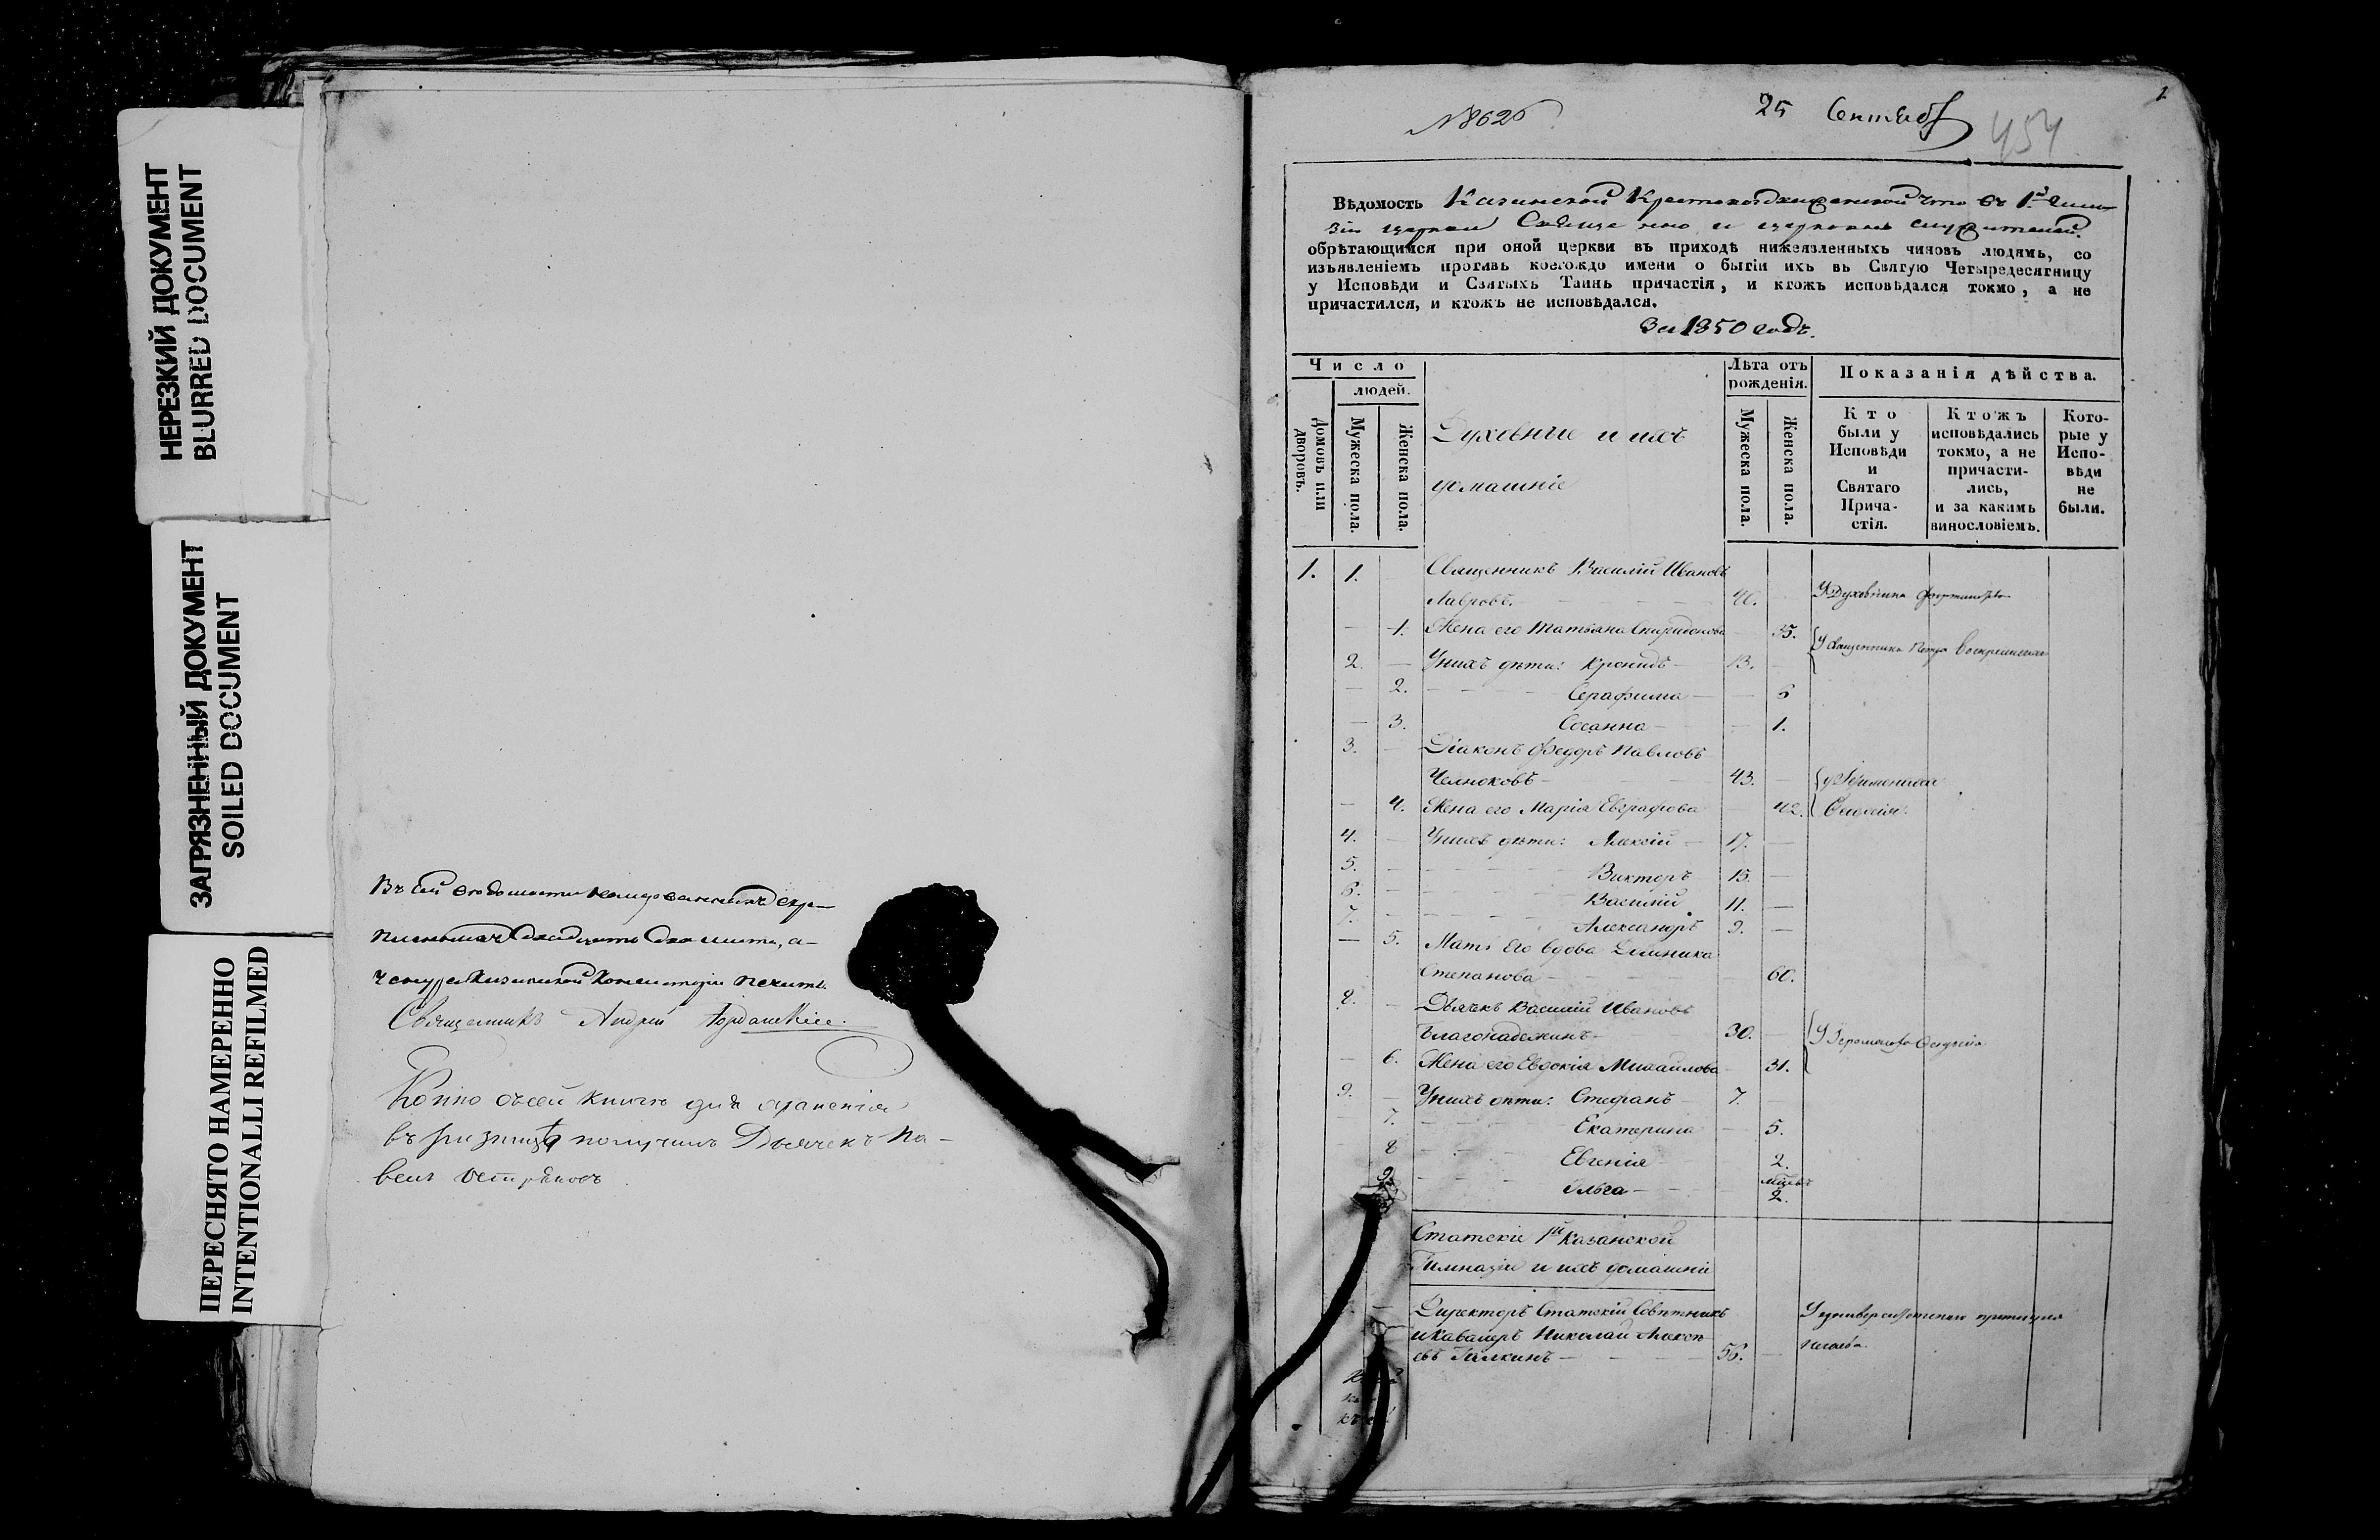 НЕРЕЗКИЙ ДОКУМЕНТ
BLURRED DOCUMENT
ЗАГРЯЗНЕННЫЙ ДОКУМЕНТ
SOILED DOCUMENT
ПЕРЕСНЯТО НАМЕРЕННО
INTENTIONALLI REFILMED
Въ сей
листа, а
печать.
Священникъ Андрей
Копию съсей книги для хранения
въ ризницѣ получилъ Дьячекъ Па-
велъ
№ 8626
25 Сентяб
454
1
Вѣдомость Казанской Крестовоздвиженской что въ 1й Гимна
зіи церкви Священно и церковно служителей
обрѣтающимся при оной церкви въ приходѣ нижеявленныхъ чиновъ людямъ, со
изъявленіемъ противъ коегождо имени о бытіи ихъ въ Святую Четыредесятницу
у Исповѣди и Святыхъ Таинъ причастія, и ктожъ исповѣдался токмо, а не
причастился, и ктожъ не исповѣдался.
За 1850 годъ.
Число
людей.
Домовъ или дворовъ.
Мужеска пола.
Женска пола.
Духовные и ихъ
домашніе
Лѣта отъ рожденія.
Мужеска пола.
Женска пола.
Показанія дѣйства.
Кто были у Исповѣди и Святаго Прича-стія.
Ктожъ исповѣдались токмо, а не причасти-лись, и за какимъ винословіемъ.
Кото-рые у Испо-вѣди не были.
1. 1. Священникъ Василій Ивановъ
Лавровъ. 40. У Духовника
1. Жена его Татьяна Спиридонова 35. У Священника Петра Воскресенскаго
2. У нихъ дѣти: Кронидъ 13.
2. Серафима 6
3. Сосанна 1.
3. Діаконъ Федоръ Павловъ
Челноковъ 43.
4. Жена его Марія Евграфова 42.
4. У нихъ дѣти: Алексій 17.
5. Викторъ 15.
6. Василій 11.
7. Александръ 9.
5. Мать его вдова
Степанова 60.
8. Дьячекъ Василій Ивановъ
Благонадеждинъ 30.
6. Жена его Евдокія Михайлова 31.
9. У нихъ дѣти: Стефанъ 7.
7. Екатерина 5.
8 Евгенія 2.
9. Ольга мѣсяц. 2.
Статскіе 1й Казанской
Гимназіи и ихъ домашніе
Директоръ Статскій Совѣтникъ
и Кавалеръ Николай Алексѣ
евъ Галкинъ 56. У университетскаго